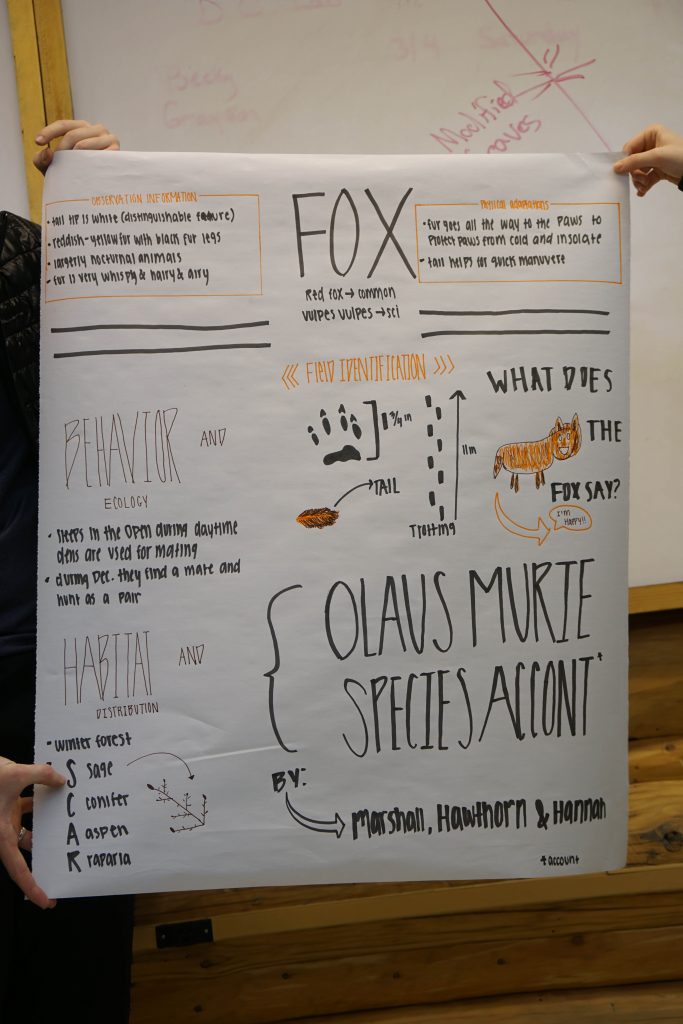 3/4 Saturday
Becky
Grayson
Modified
OBSERVATION INFORMATION
• tail tip is white (distinguishable feature)
• reddish-yellow fur with black fur legs
• largerly nocturnal animals
• fur is very whispy & hairy & airy
FOX
Red fox → common
vulpes vulpes → sci
Physical adaptations
• fur goes all the way to the paws to
Protect paws from cold and insolate
• tail helps for quick manuvere
BEHAVIOR AND
ECOLOGY
• sleeps in the open during daytime
dens are used for mating
• during Dec. they find a mate and
hunt as a pair
HABITAT AND
DISTRIBUTION
• winter forest
S sage
C conifer
A aspen
R raparia
<<< FIELD IDENTIFICATION >>>
in
TAIL
11in
Trotting
WHAT DOES
THE
FOX SAY?
I'm
HAPPY!!
OLAUS MURIE
SPECIES ACCONT*
BY:
Marshall, Hawthorn & Hannah
* account